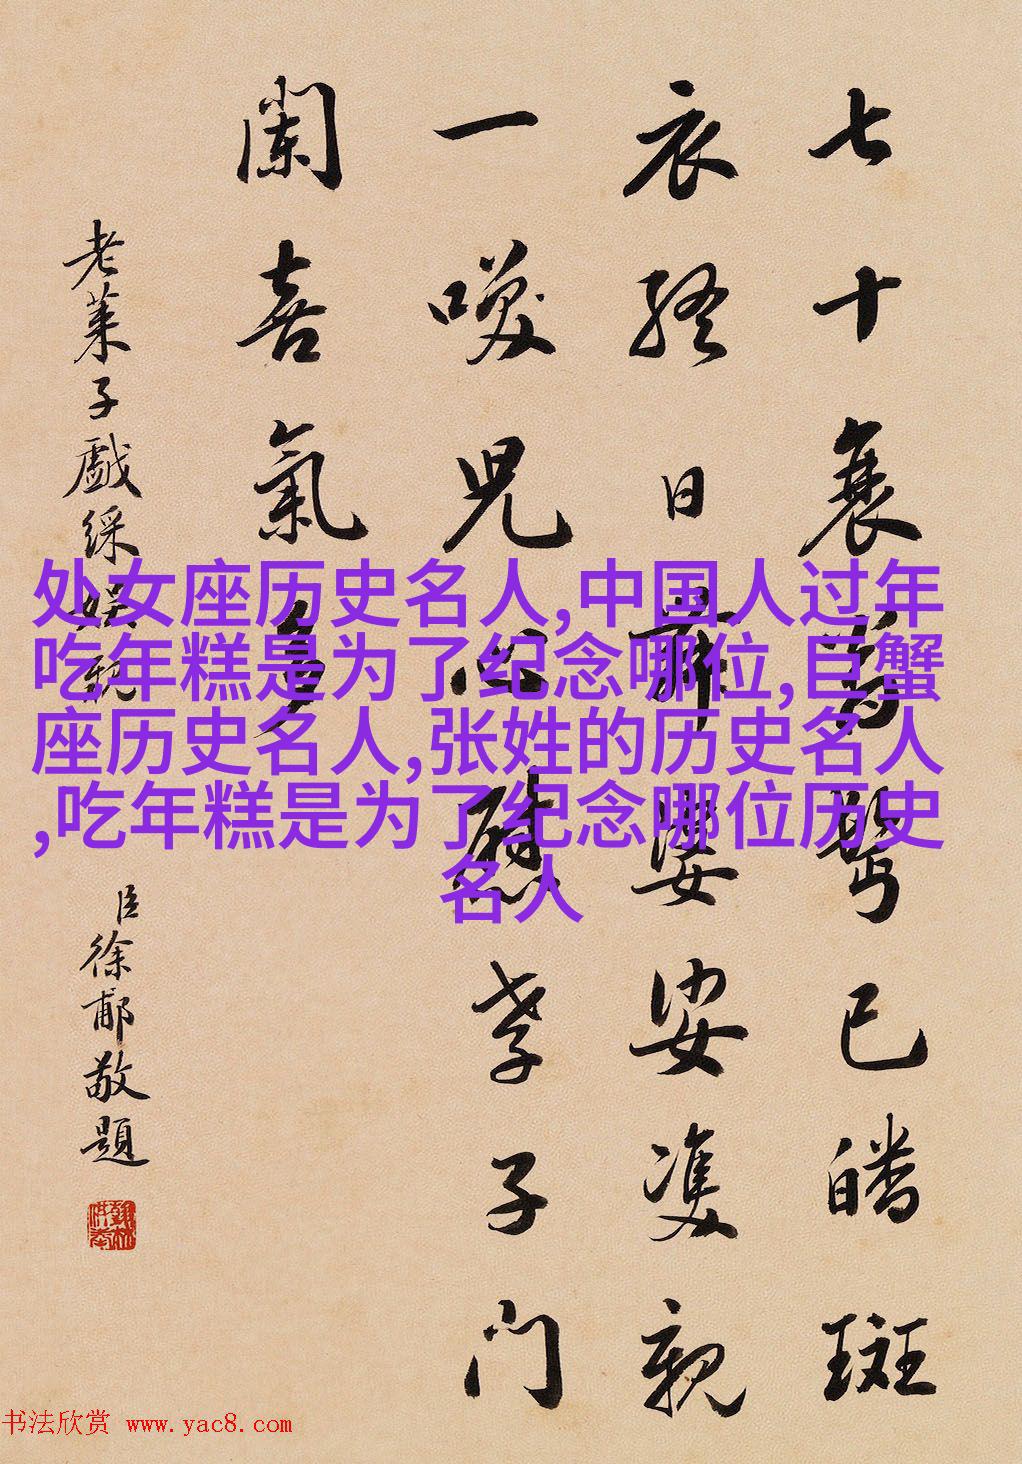 七十衰翁鬢已皤斑
衣終日舞婆娑雙親
一咲兒心慰孝子門
闌喜氣多
老萊子戲綵娛親
臣徐郙敬題
处女座历史名人,中国人过年
吃年糕是为了纪念哪位,巨蟹
座历史名人,张姓的历史名人
,吃年糕是为了纪念哪位历史
名人
书法欣赏 www.yac8.com